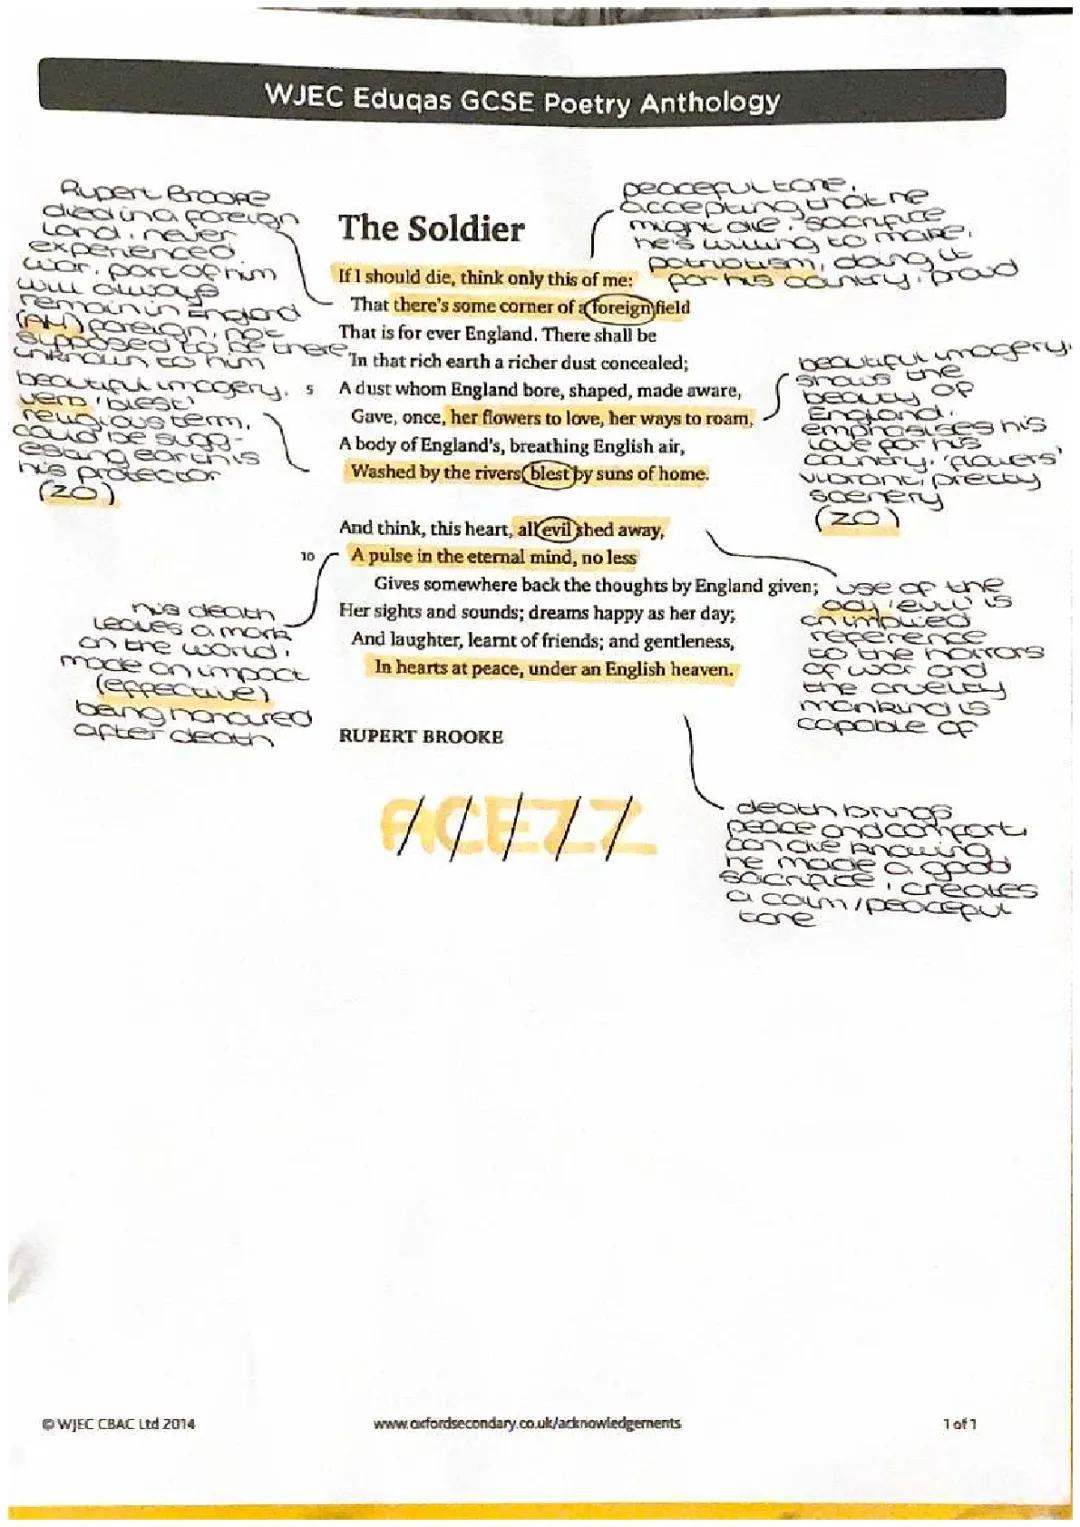 WJEC Eduqas GCSE Poetry Anthology
Rupert Brooke
died in a foreign
land, never
experienced
war, part of him
will always
remain in England
(AH) foreign, not
supposed to be there
unknown to him
beautiful imagery,
verb 'blest'
religious term,
could be sugg-
esting earth is
his protector
(ZO)
peaceful tone,
accepting that he
might die, sacrifice
he's willing to make,
patriotism, doing it
for his country, proud
The Soldier
If I should die, think only this of me:
That there's some corner of a foreign field
That is for ever England. There shall be
In that rich earth a richer dust concealed;
5 A dust whom England bore, shaped, made aware,
Gave, once, her flowers to love, her ways to roam,
A body of England's, breathing English air,
Washed by the rivers, blest by suns of home.
And think, this heart, all evil shed away,
10 A pulse in the eternal mind, no less
Gives somewhere back the thoughts by England given;
Her sights and sounds; dreams happy as her day;
And laughter, learnt of friends; and gentleness,
In hearts at peace, under an English heaven.
RUPERT BROOKE
beautiful imagery.
shows the
beauty of
England.
emphasises his
love for his
country. 'flowers'
vibrant, pretty
scenery
(ZO)
his death
leaves a mark
on the world,
made an impact
(effective)
being honoured
after death
use of the
adj 'evil' is
an implied
reference
to the horrors
of war and
the cruelty
mankind is
capable of
ACEZZ
death brings
peace and comfort
can die knowing
he made a good
sacrifice, creates
a calm/peaceful
tone
© WJEC CBAC Ltd 2014
www.oxfordsecondary.co.uk/acknowledgements
1 of 1